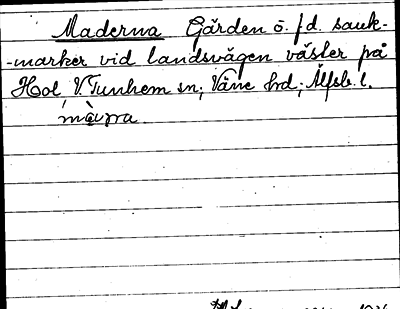 Maderna Gärden ö. f.d. sauk-
-marker vid landsvägen väster på
Hol, V. Tunhem sn; Väne hrd; Älfsb. l.